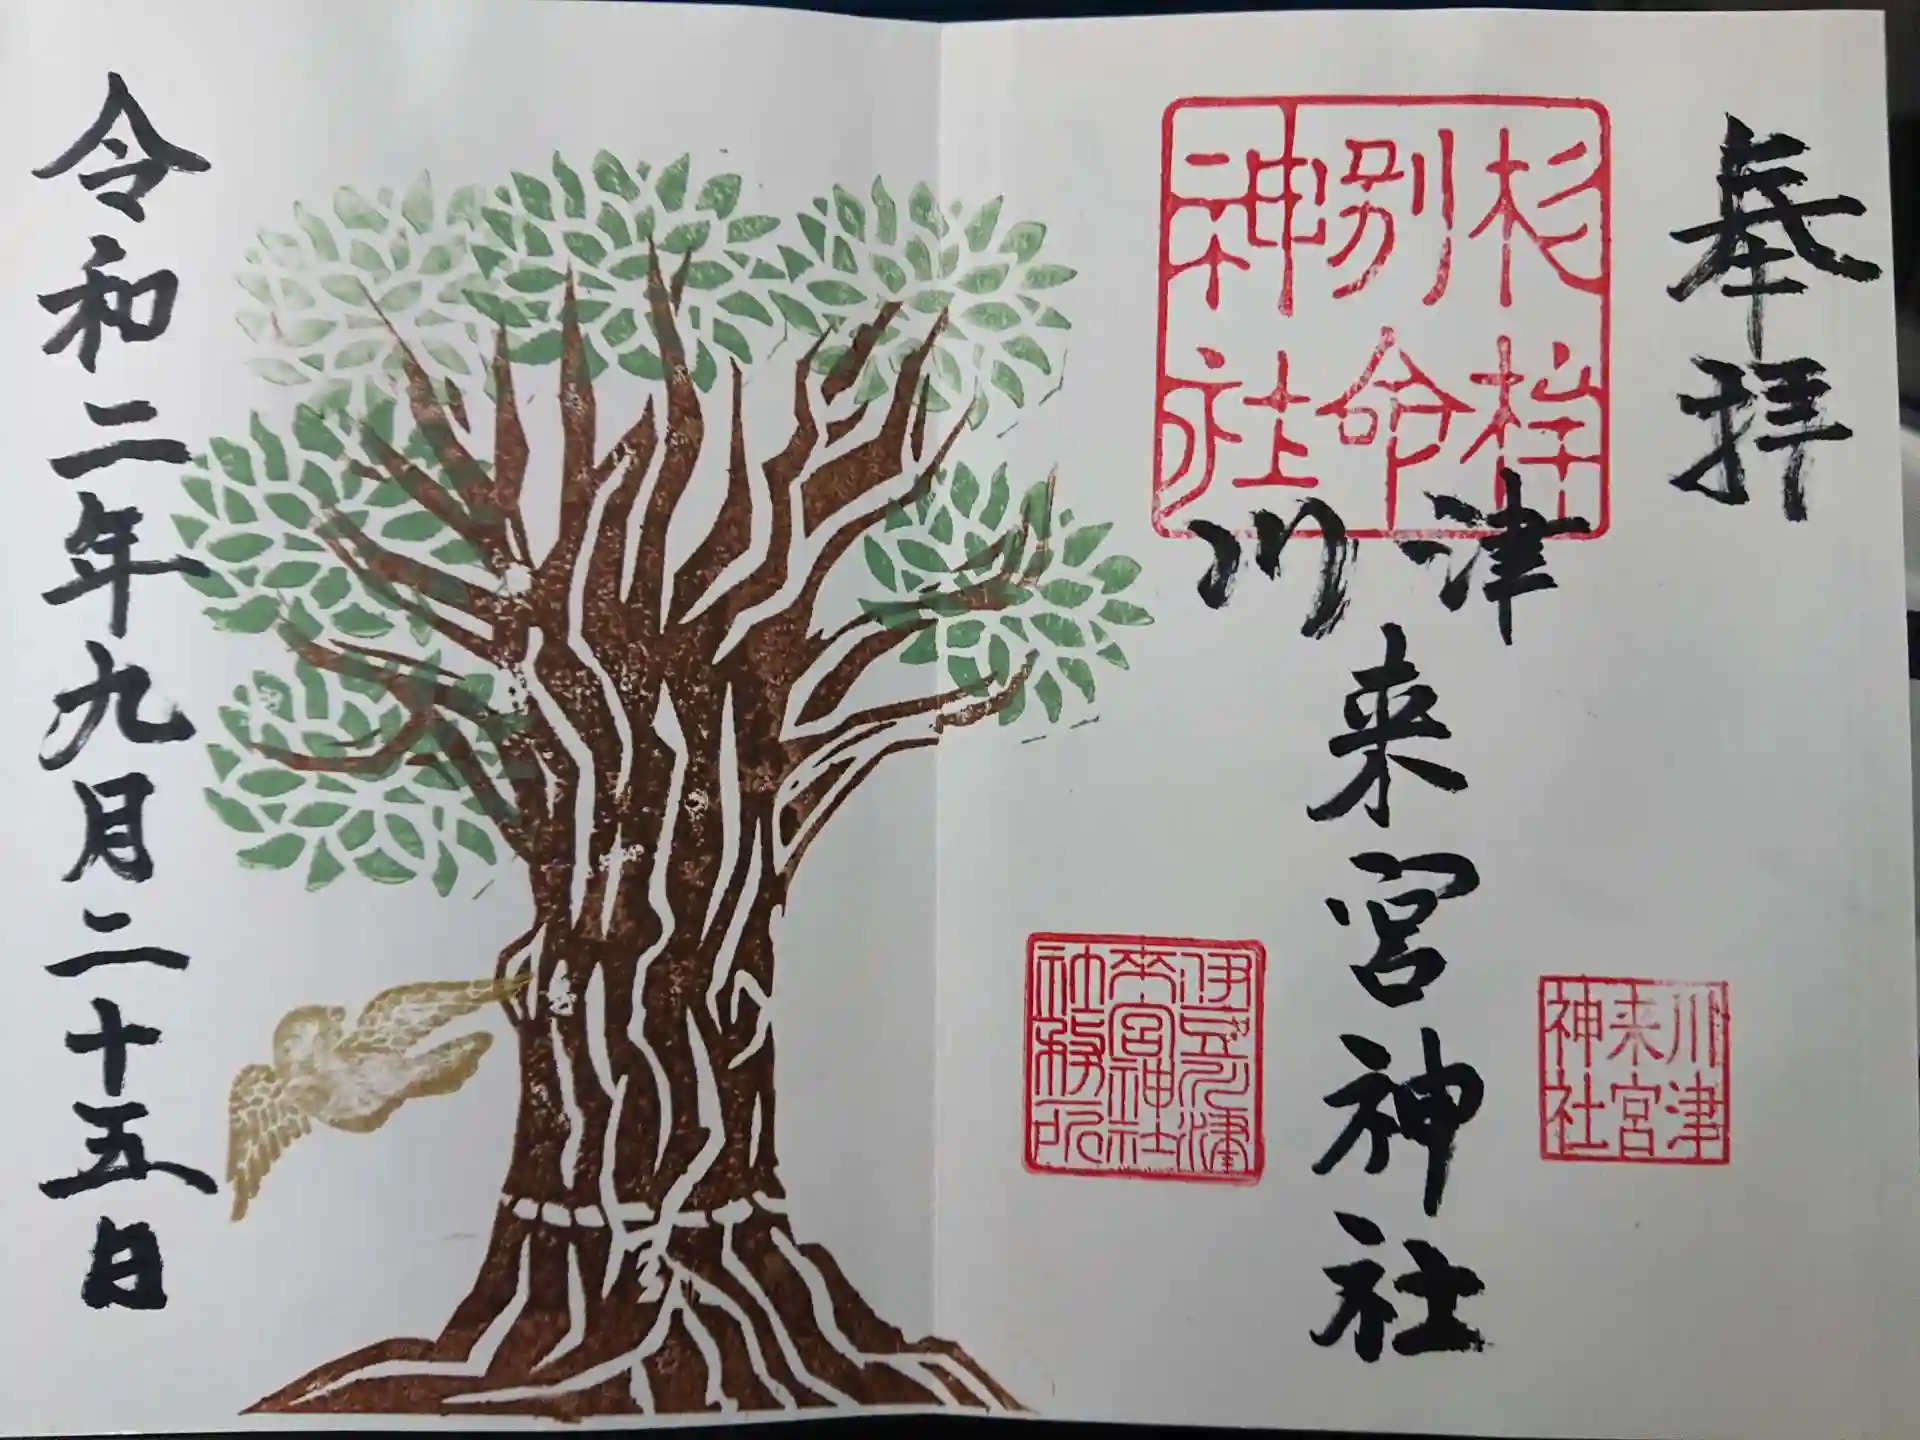 奉拝
杉桙
別命
神社
川津
来宮神社
川津
来宮
神社
伊豆河津
来宮神社
社務所
令和二年九月二十五日